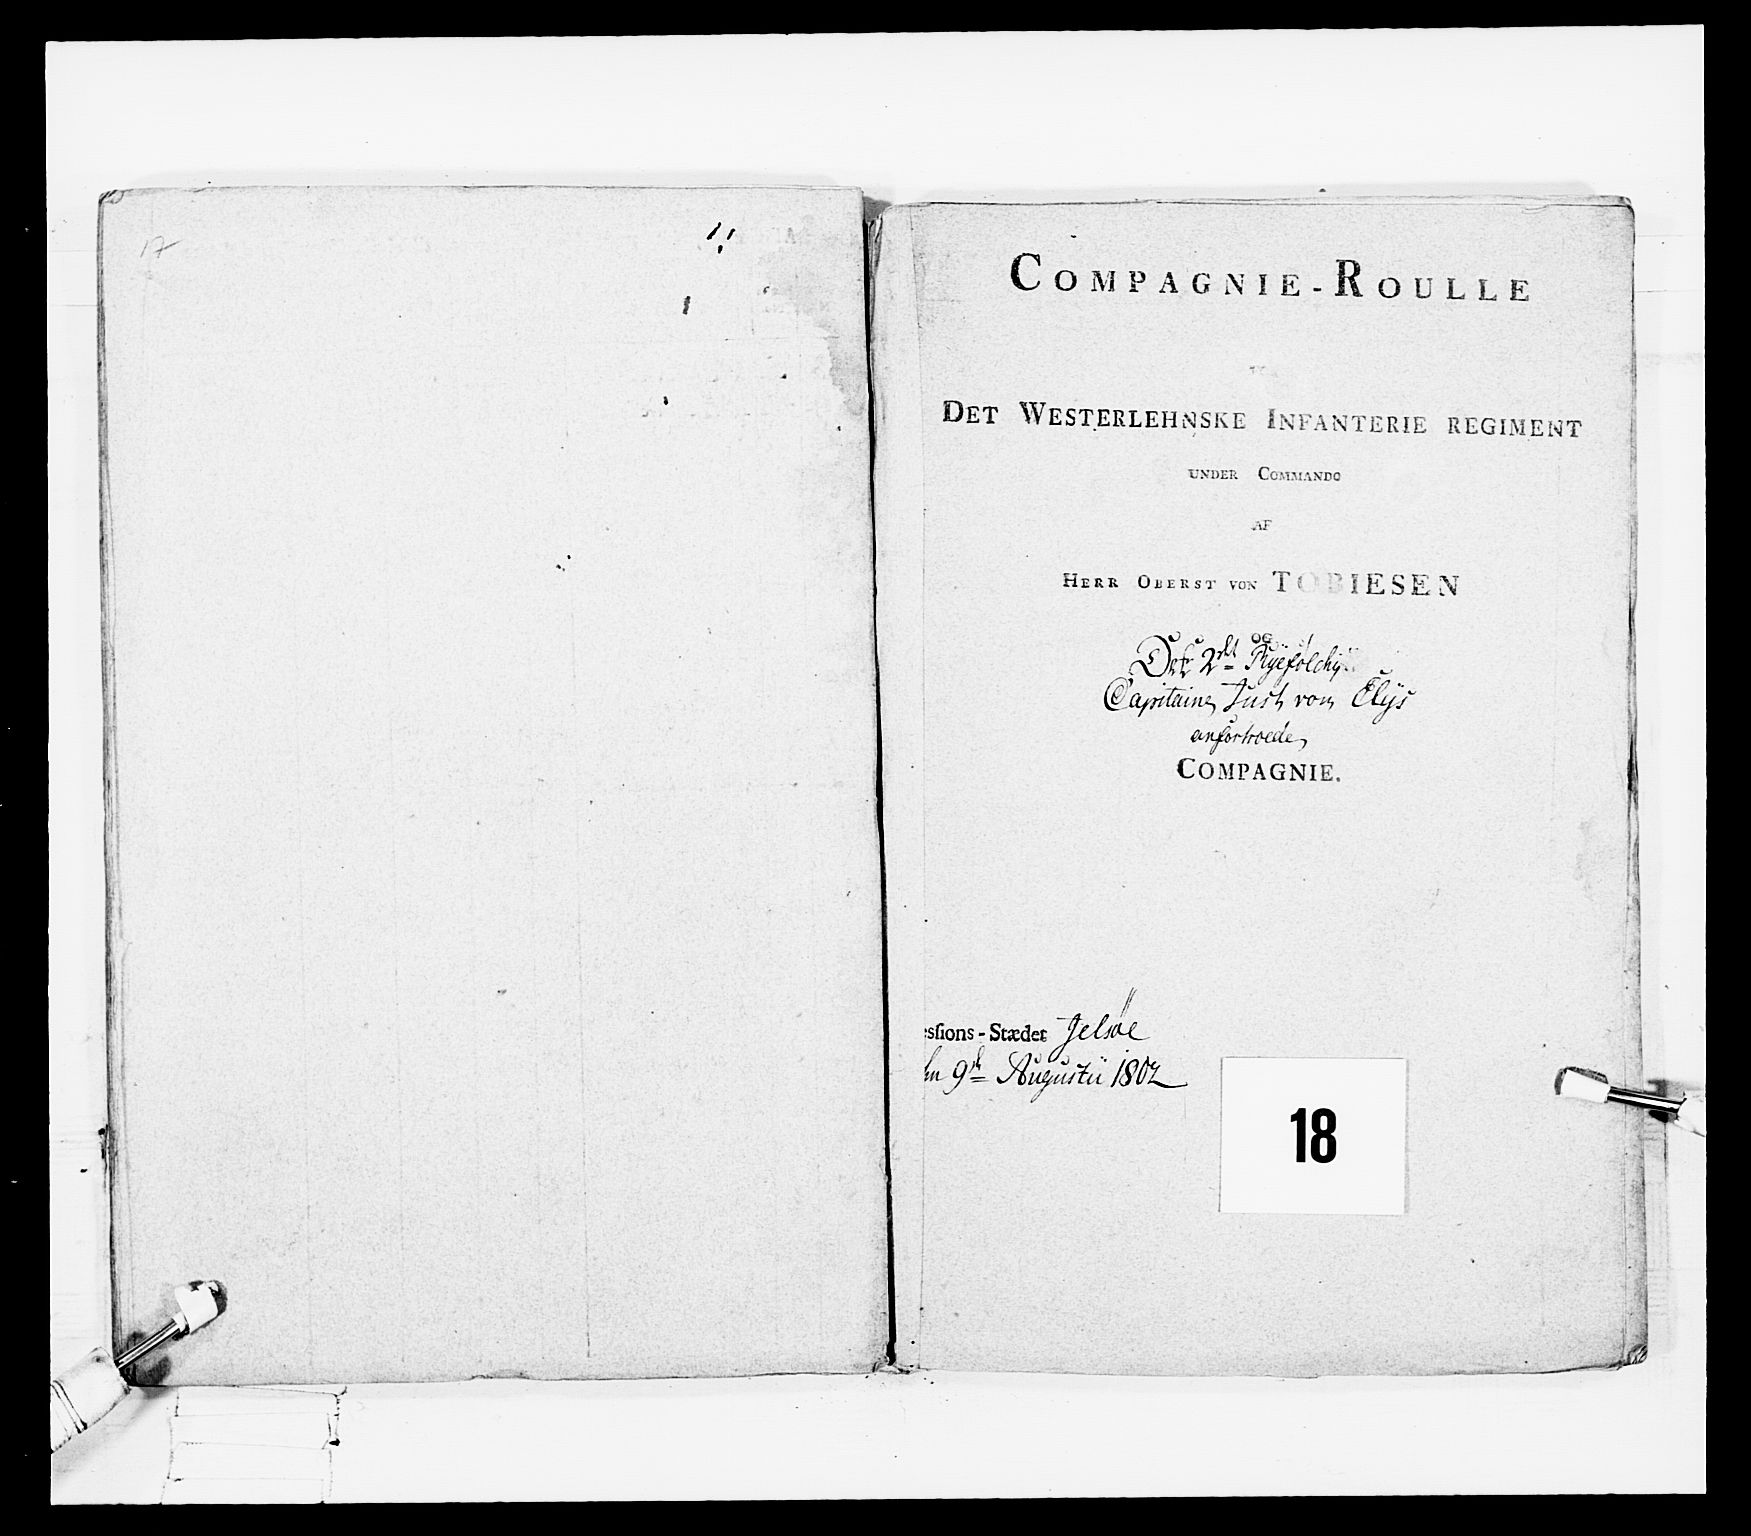 17
COMPAGNIE-ROULLE
DET WESTERLEHNSKE INFANTERIE REGIMENT
UNDER COMMANDO
AF
HERR OBERST VON TOBIESEN
OG
Det 2det Ryefølchÿ
Capitaine Just von Elÿs
anfortroede
COMPAGNIE.
esſions-Stædet Jelsøe
en 9de Augustii 1802
18